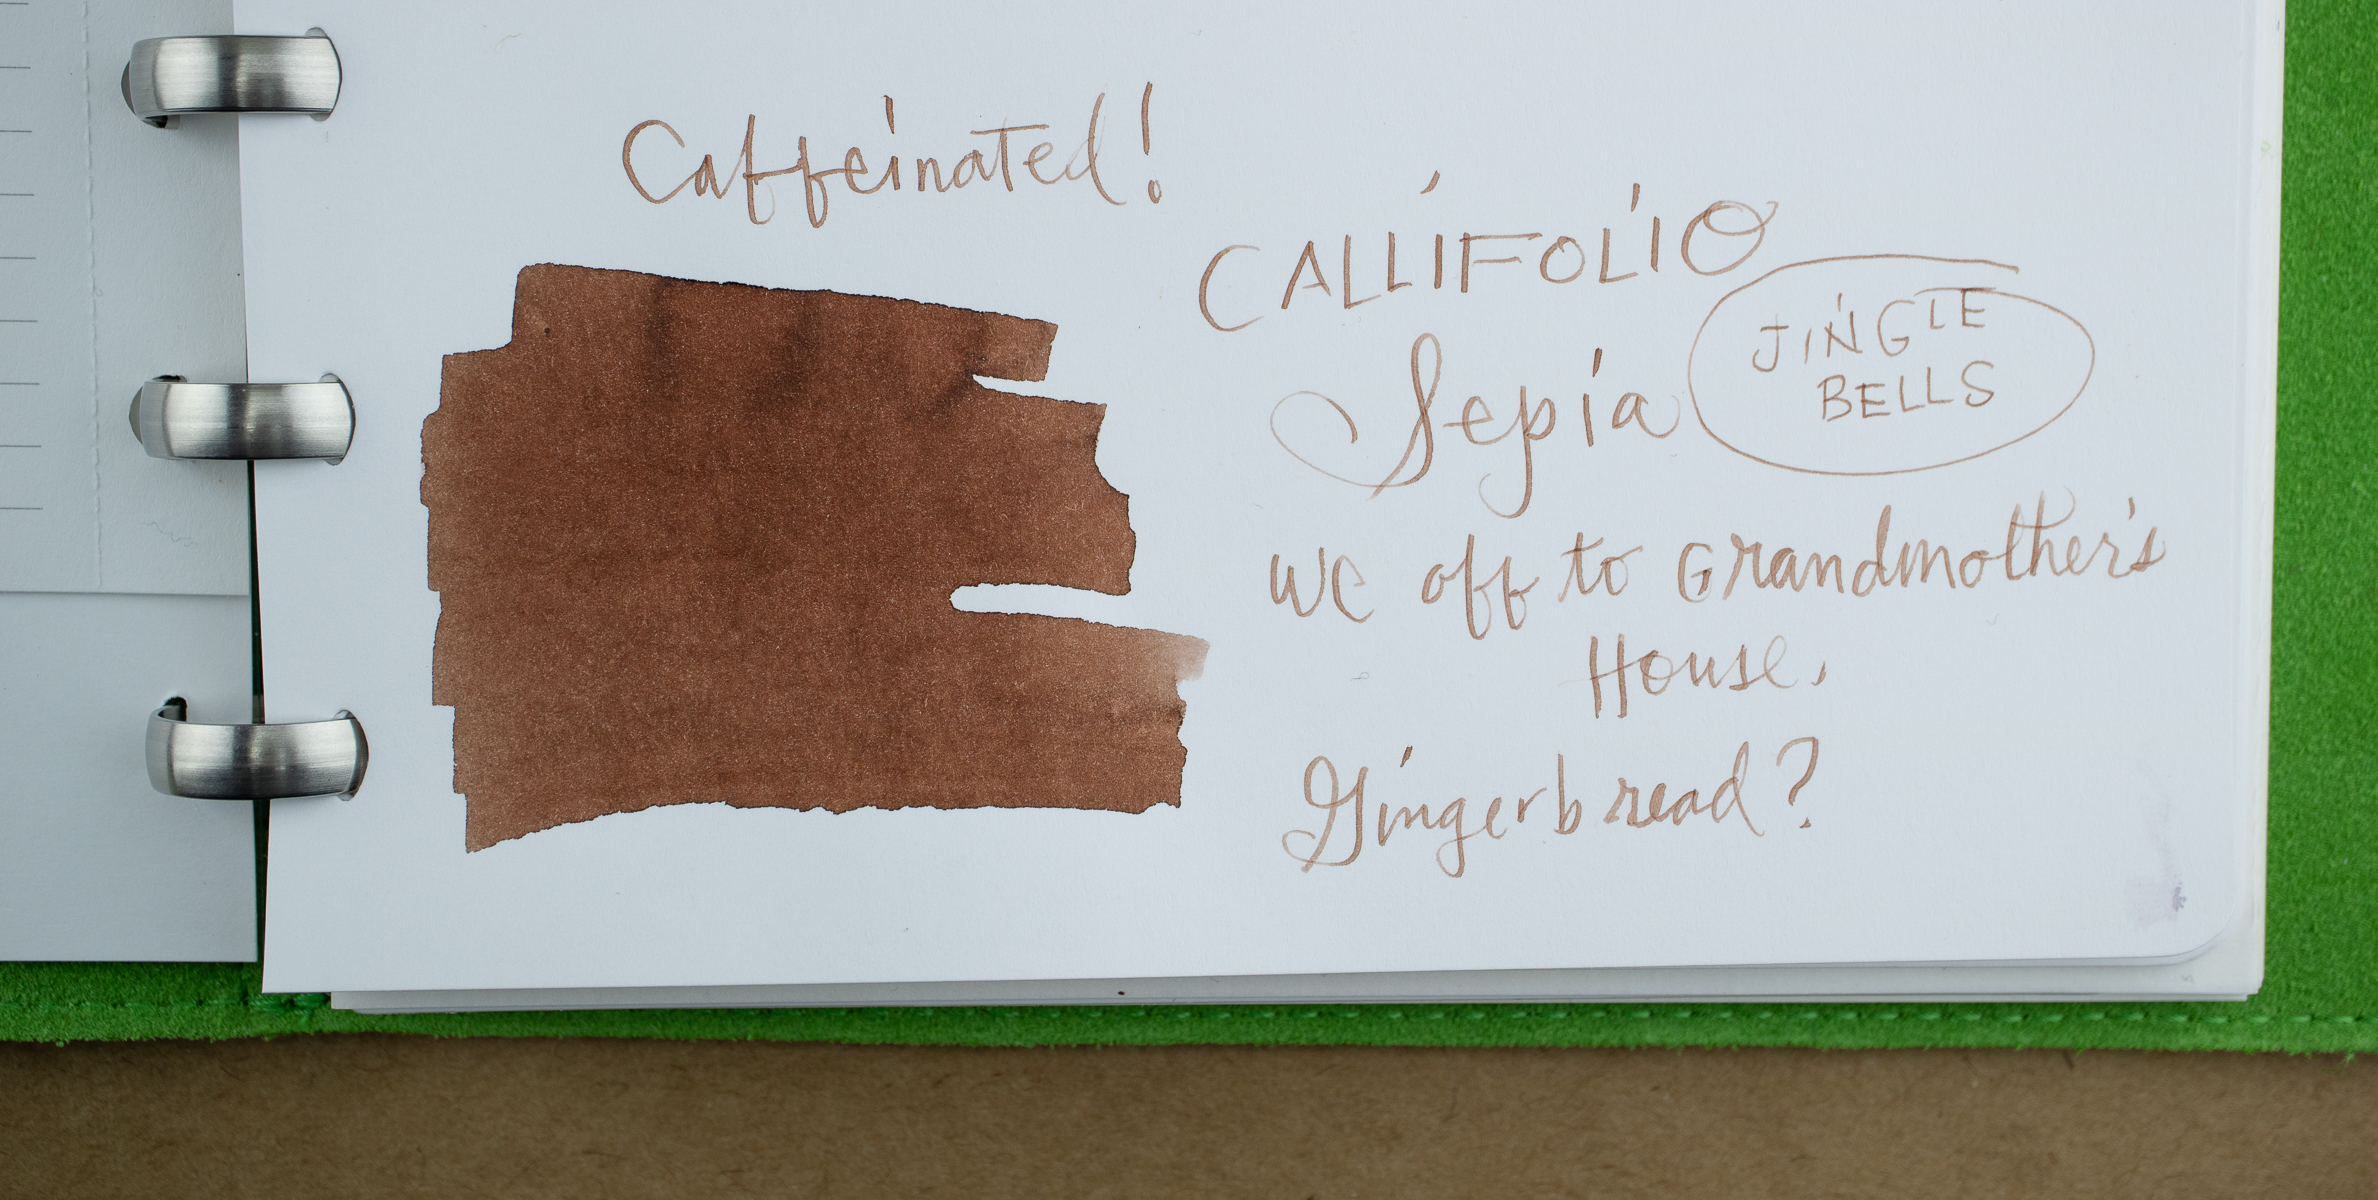 Caffeinated!
CALLIFOLIO
Sepia
JINGLE
BELLS
We off to Grandmother's
House.
Gingerbread?